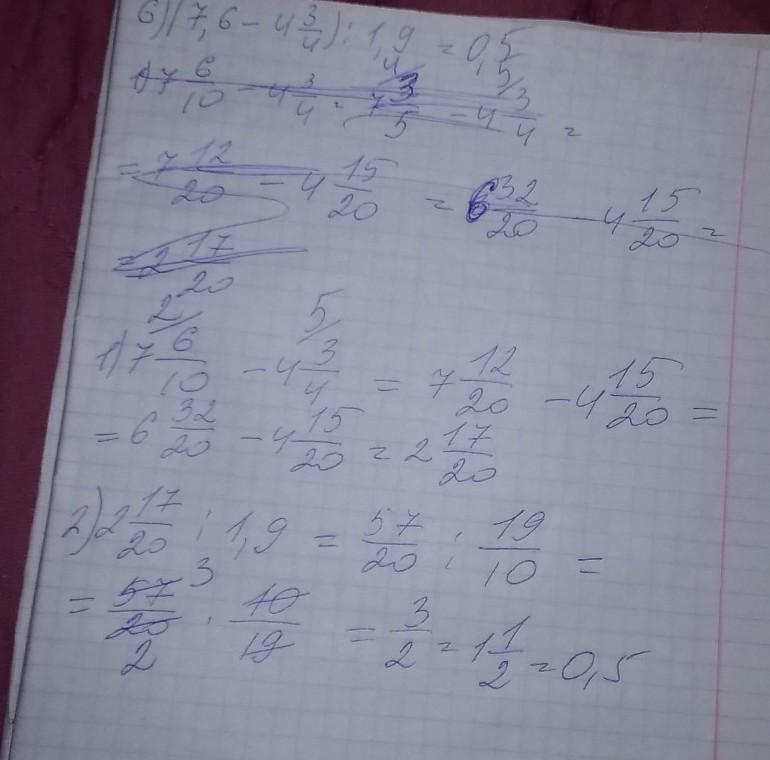 б) (7,6 - 4 3/4) : 1,9 = 0,5
1) 7 6/10 - 4 3/4 = 7 3/5 - 4 3/4 =
= 7 12/20 - 4 15/20 = 6 32/20 - 4 15/20 =
= 2 17/20
1) 7 6/10 - 4 3/4 = 7 12/20 - 4 15/20 =
= 6 32/20 - 4 15/20 = 2 17/20
2) 2 17/20 : 1,9 = 57/20 : 19/10 =
= 57/20 · 10/19 = 3/2 = 1 1/2 = 0,5